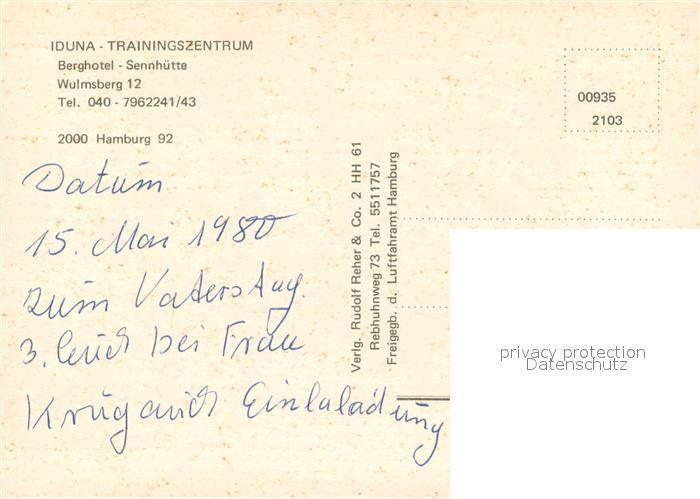 IDUNA - TRAININGSZENTRUM
Berghotel - Sennhütte
Wulmsberg 12
Tel. 040 - 7962241/43
2000 Hamburg 92
00935
2103
Datum
15. Mai 1980
zum Vaterstag.
3. bei Frau
Krug auch Einlaladung
Verlg. Rudolf Reher & Co. 2 HH 61
Rebhuhnweg 73 Tel. 5511757
Freigegb. d. Luftfahramt Hamburg
privacy protection
Datenschutz